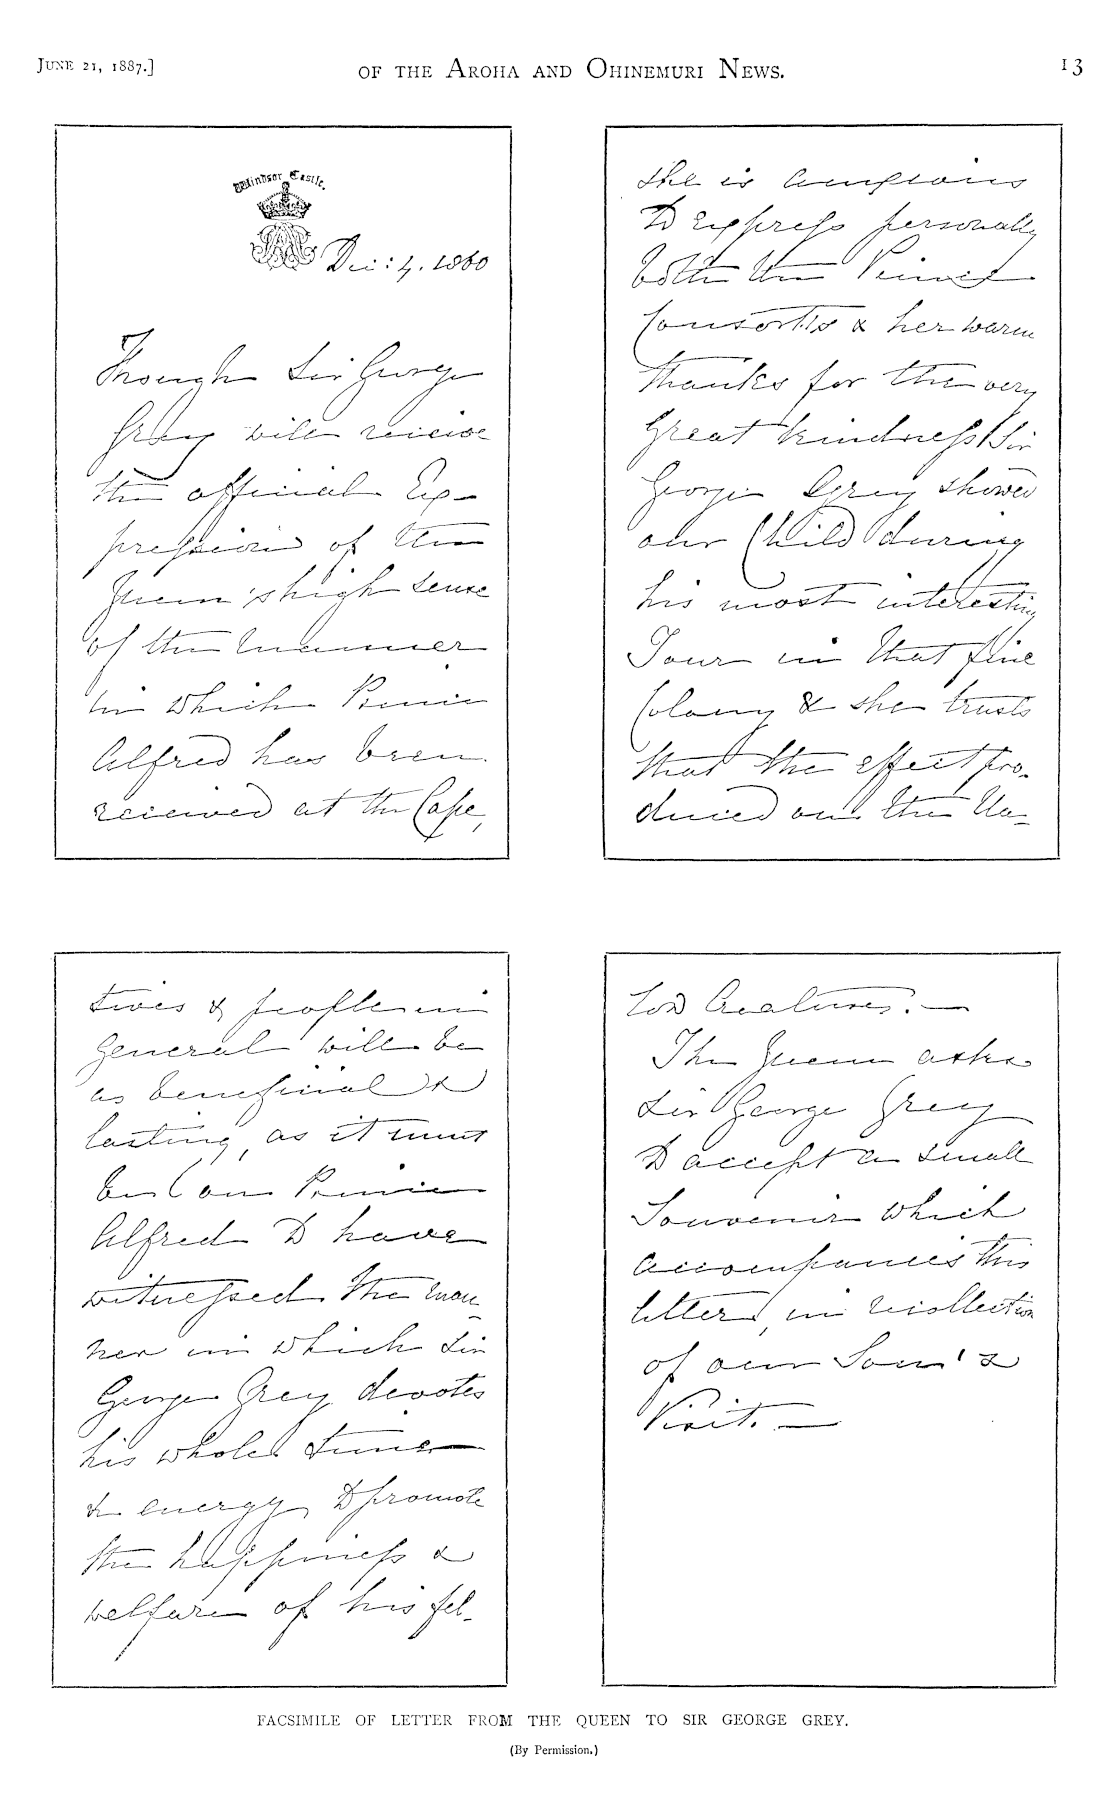 JUNE 21, 1887.]
OF THE AROHA AND OHINEMURI NEWS.
13
Windsor Castle.
Dec: 4. 1860
Though Sir George
Grey will receive
the official Ex-
pression of the
Queen's high sense
of the manner
in which Prince
Alfred has been
received at the Cape,
she is anxious
to express personally
both the Prince
Consort's & her warm
thanks for the very
great kindness Sir
George Grey showed
our Child during
his most interesting
Tour in that fine
Colony & she trusts
that the effect pro-
duced on the Na-
tives & people in
general will be
as beneficial &
lasting, as it must
be on Prince
Alfred to have
witnessed the man-
ner in which Sir
George Grey devotes
his whole time
& energy to promote
the happiness &
welfare of his fel-
low Creatures. —
The Queen asks
Sir George Grey
to accept a small
Souvenir which
accompanies this
letter, in recollection
of our Son's
Visit. —
FACSIMILE OF LETTER FROM THE QUEEN TO SIR GEORGE GREY.
(By Permission.)